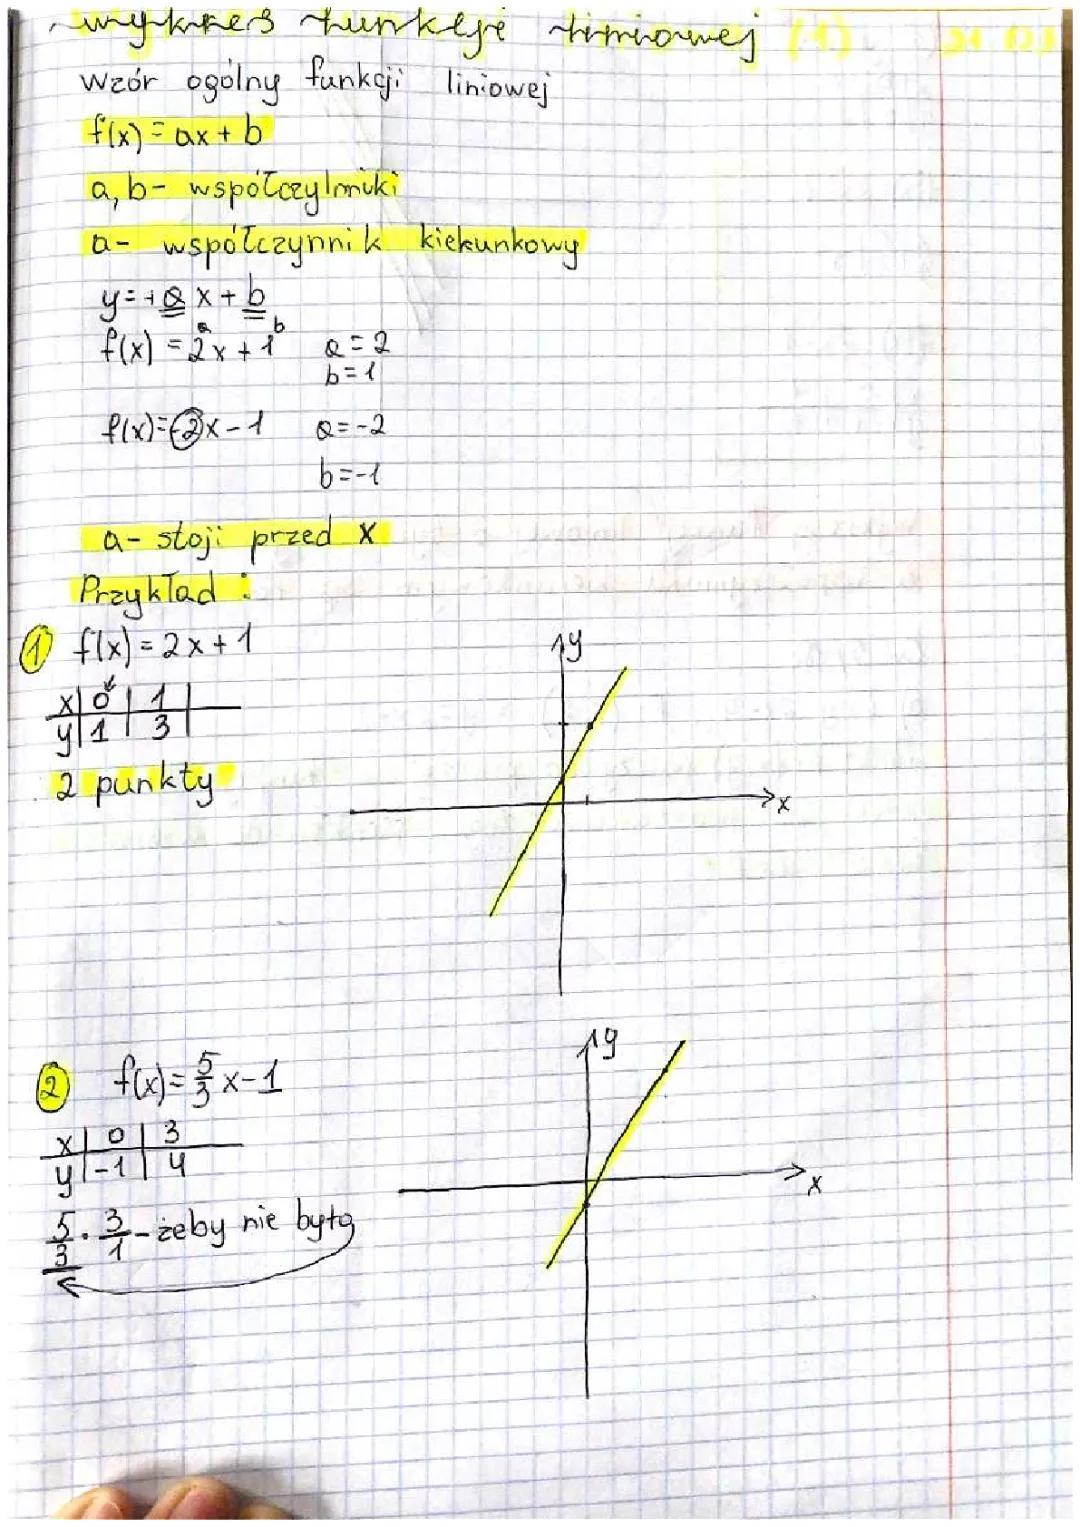 wykres funkcji liniowej
wzór ogólny funkcji liniowej
f(x) = ax + b
a, b - współczylnniki
a - współczynnik kiekunkowy
y = + a x + b
a b
f(x) = 2x + 1 a = 2
b = 1
f(x) = -2x - 1 a = -2
b = -1
a - stoji przed x
Przykład :
1 f(x) = 2x + 1
y
x | 0 | 1 |
y | 1 | 3 |
2 punkty
x
y
2 f(x) = 5/3 x - 1
x | 0 | 3
y | -1 | 4
x
5/3 . 3/1 - żeby nie było